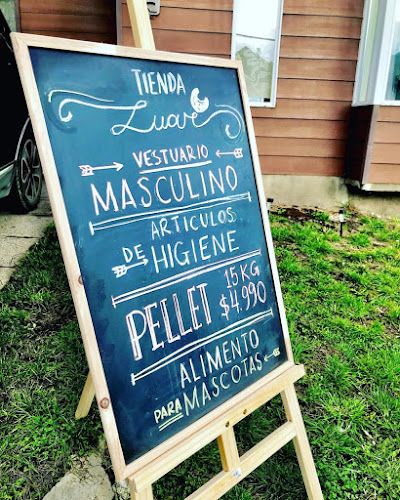 TIENDA
Luave
VESTUARIO
MASCULINO
ARTICULOS
DE HIGIENE
PELLET 15 KG
$4.990
ALIMENTO
PARA MASCOTAS